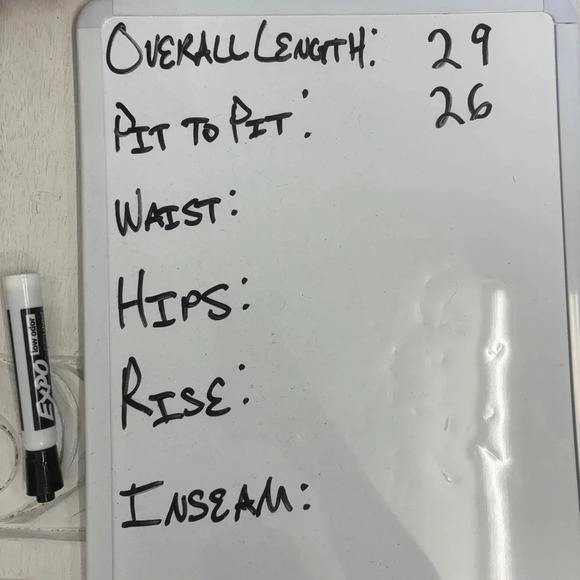 OVERALL LENGTH: 29
PIT TO PIT: 26
WAIST:
HIPS:
RISE:
INSEAM:
EXPO
low odor